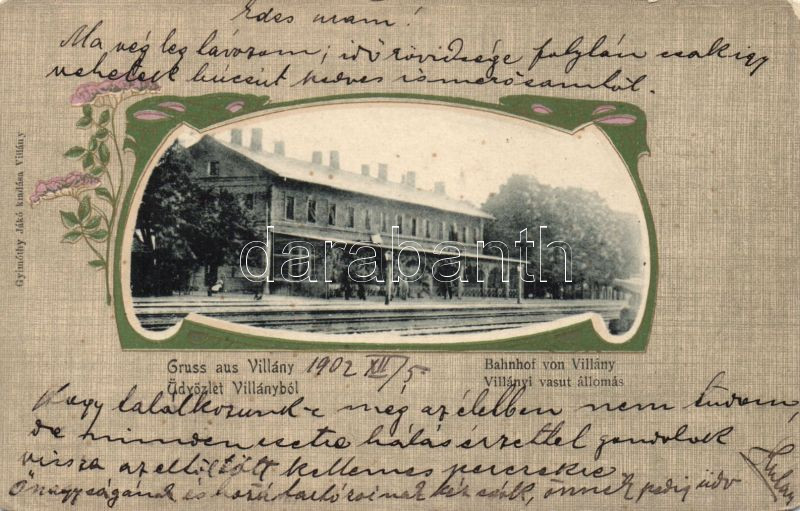 Édes uram!
Ma vég leg távozom; idő rövidsége folytán csak így
vehetek búcsút kedves ismerősömtől.
Gyimóthy Jákó kiadása Villány
darabanth
Gruss aus Villány 1902 XII/5
Üdvözlet Villányból
Bahnhof von Villány
Villányi vasut állomás
Hogy találkozunk-e még az életben nem tudom,
de mindenesetre hálás érzettel gondolok
vissza az eltöltött kellemes perczekre
Önagyságának és hozzátartozóinak kéz csók, önnek pedig üdv